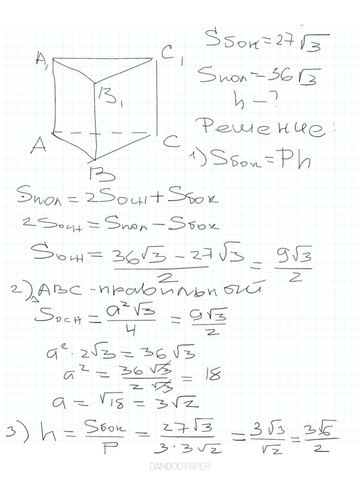 Sбок = 27√3
Sпол = 36√3
h - ?
Решение:
A₁ C₁
B₁
A C
B
1) Sбок = Ph
Sпол = 2Sосн + Sбок
2Sосн = Sпол - Sбок
Sосн = (36√3 - 27√3)/2 = 9√3/2
2) △ABC - правильный
Sосн = a²√3/4 = 9√3/2
a² · 2√3 = 36√3
a² = 36√3/2√3 = 18
a = √18 = 3√2
3) h = Sбок/P = 27√3/3·3√2 = 3√3/√2 = 3√6/2
BAMBOOPAPER